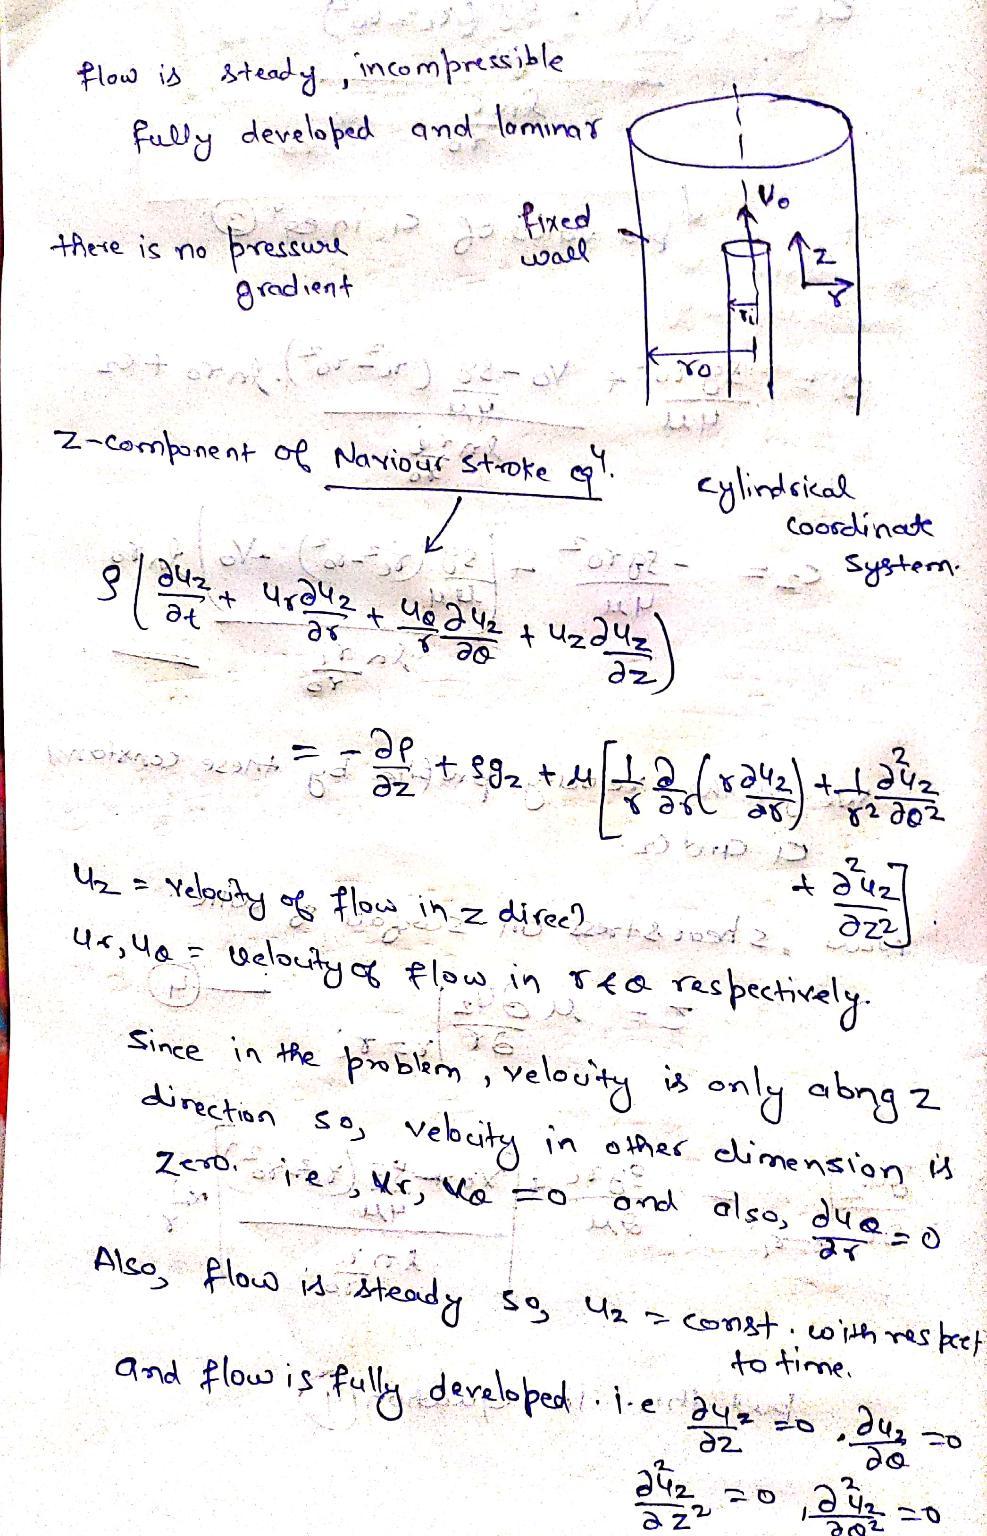 flow is steady, incompressible
fully developed and laminar
there is no pressure
gradient
fixed
wall
V₀
z
r
rᵢ
r₀
z-component of Naviour stroke eqⁿ.
cylindrical
coordinate
system.
ρ(∂u_z/∂t + u_r ∂u_z/∂r + u_θ/r ∂u_z/∂θ + u_z ∂u_z/∂z)
= -∂P/∂z + ρg_z + μ[1/r ∂/∂r(r ∂u_z/∂r) + 1/r² ∂²u_z/∂θ²
+ ∂²u_z/∂z²].
u_z = velocity of flow in z direcⁿ
u_r, u_θ = velocity of flow in r & θ respectively.
Since in the problem, velocity is only along z
direction so, velocity in other dimension is
zero. i.e., u_r, u_θ = 0 and also, ∂u_θ/∂r = 0
Also, flow is steady so, u_z = const. with respect
to time.
and flow is fully developed. i.e ∂u_z/∂z = 0, ∂u_z/∂θ = 0
∂²u_z/∂z² = 0, ∂²u_z/∂θ² = 0